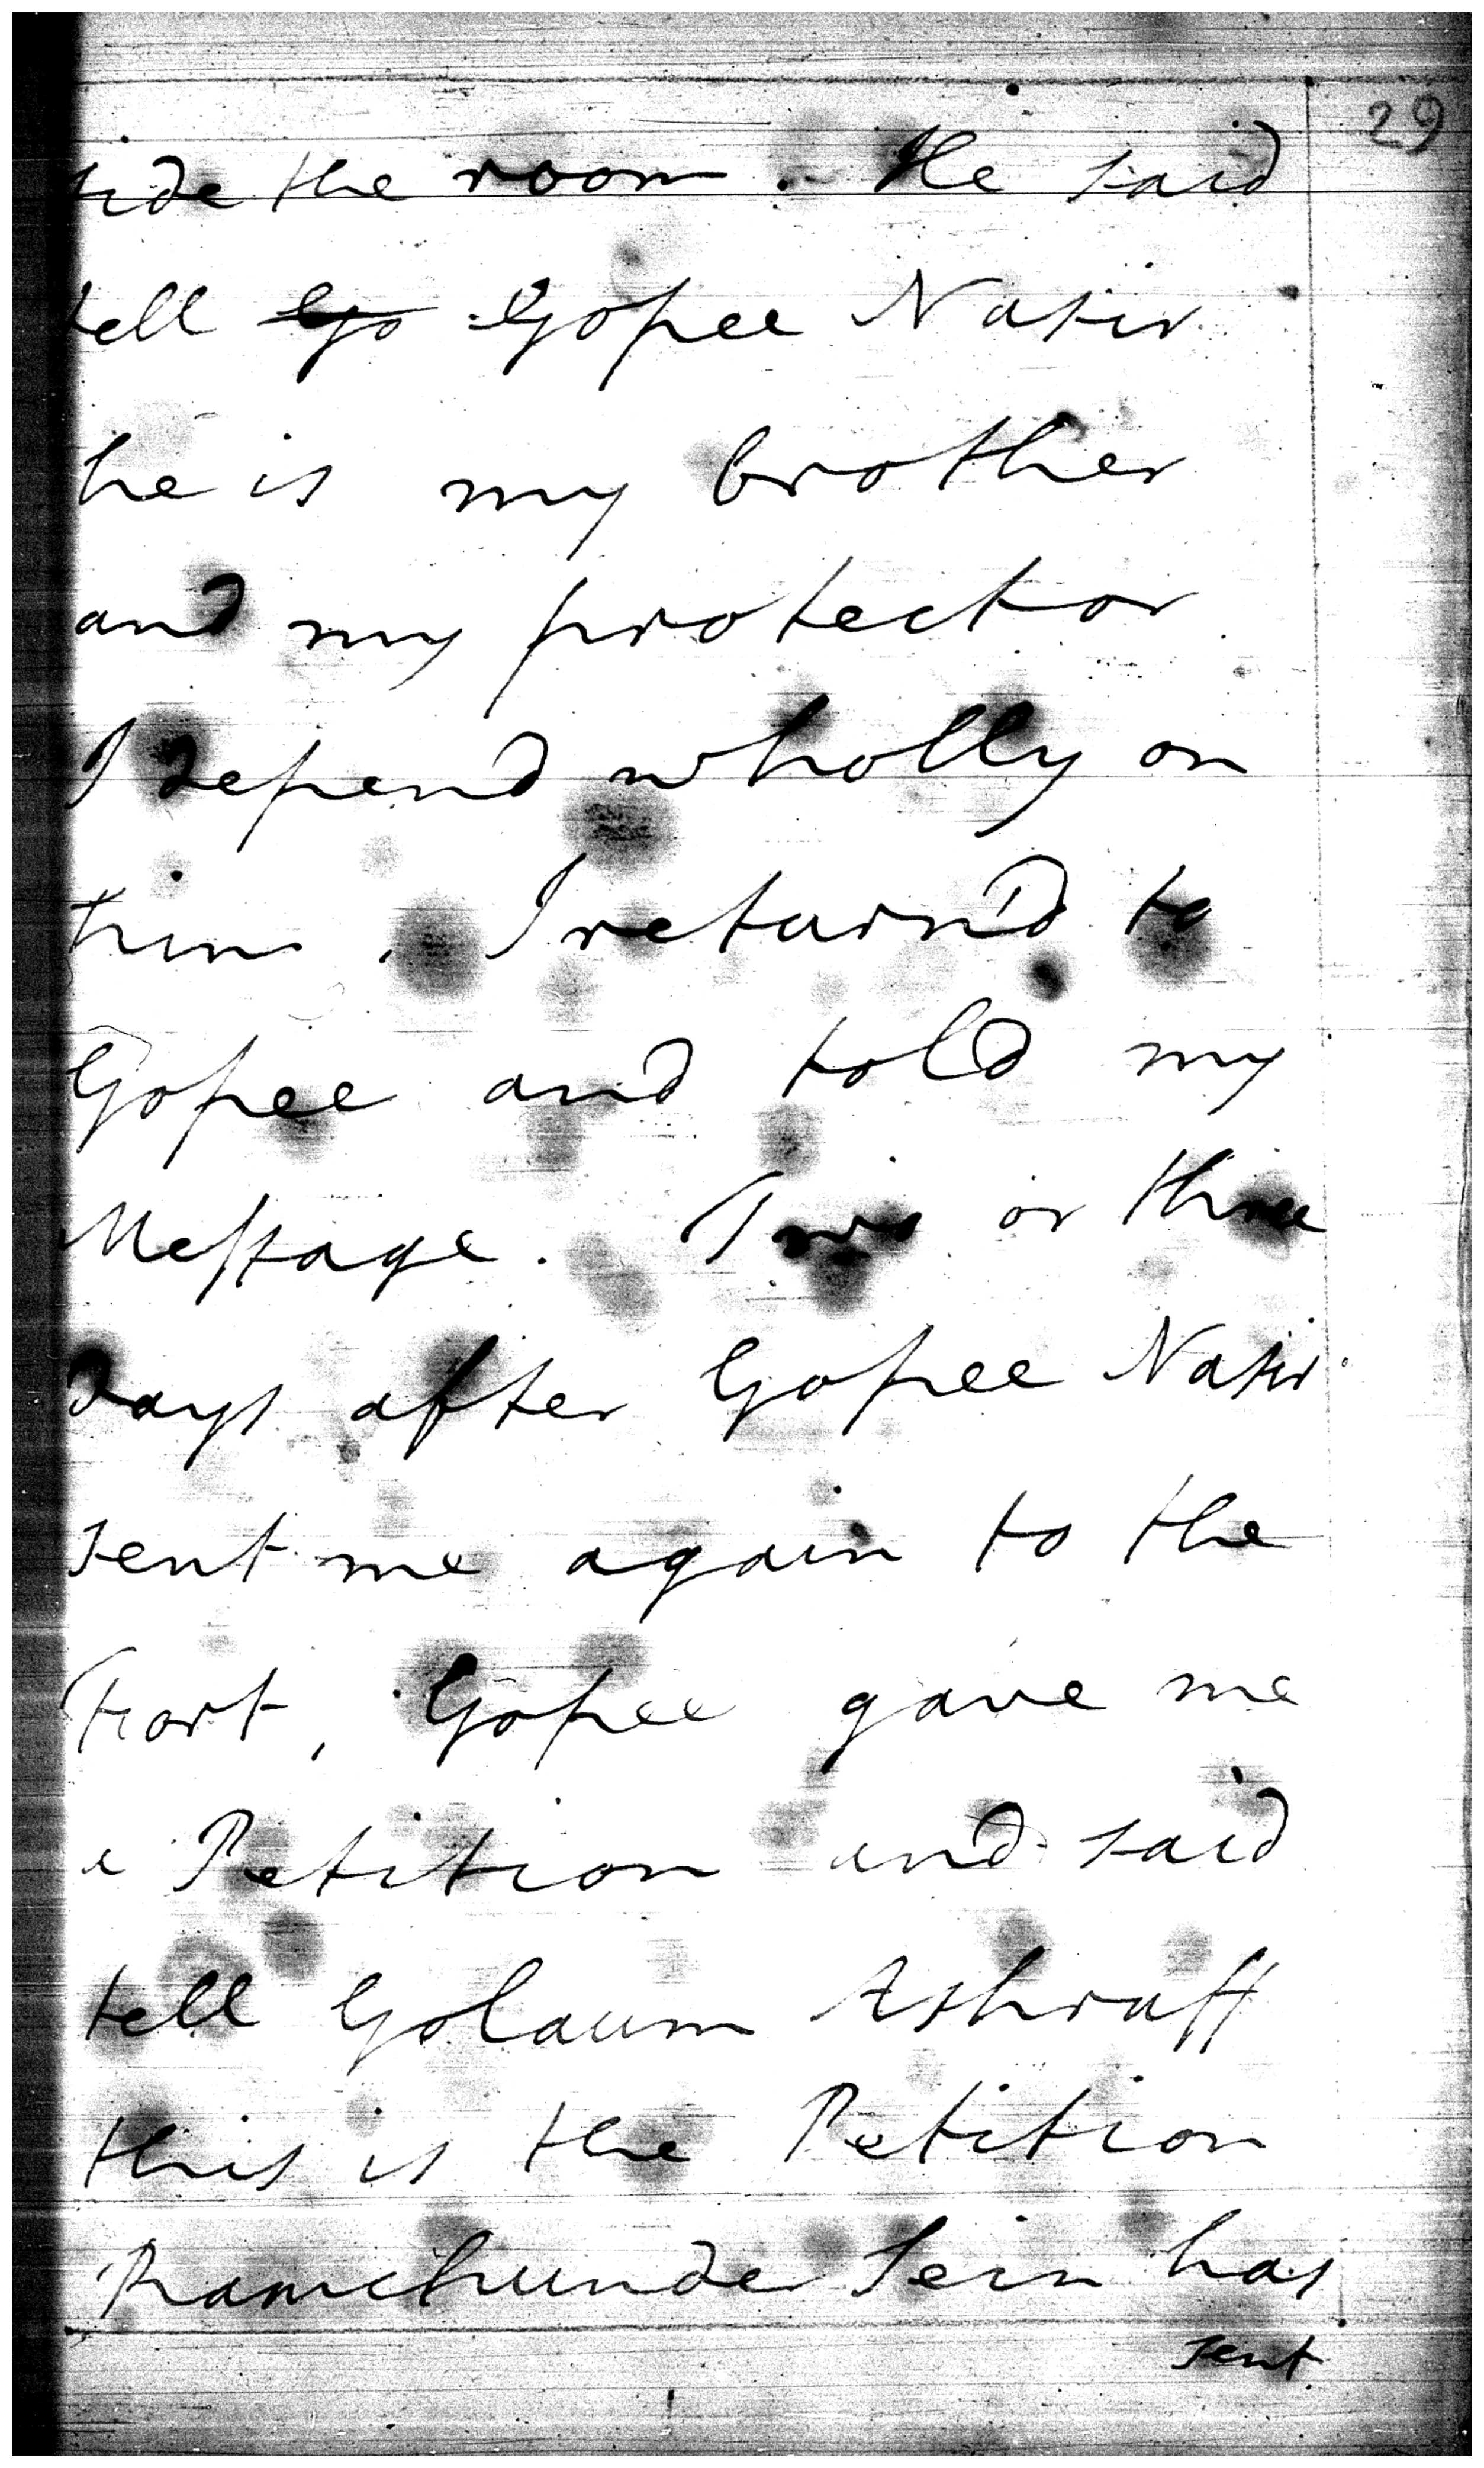 29
side the room. He said
tell ~~Go~~ Gopee Nasir
he is my brother
and my protector
I depend wholly on
him. I return'd to
Gopee and told my
Message. Two or three
days after Gopee Nasir
sent me again to the
Fort, Gopee gave me
a Petition and said
tell Golaum Ashruff
this is the Petition
Ramchunder Sein has
sent